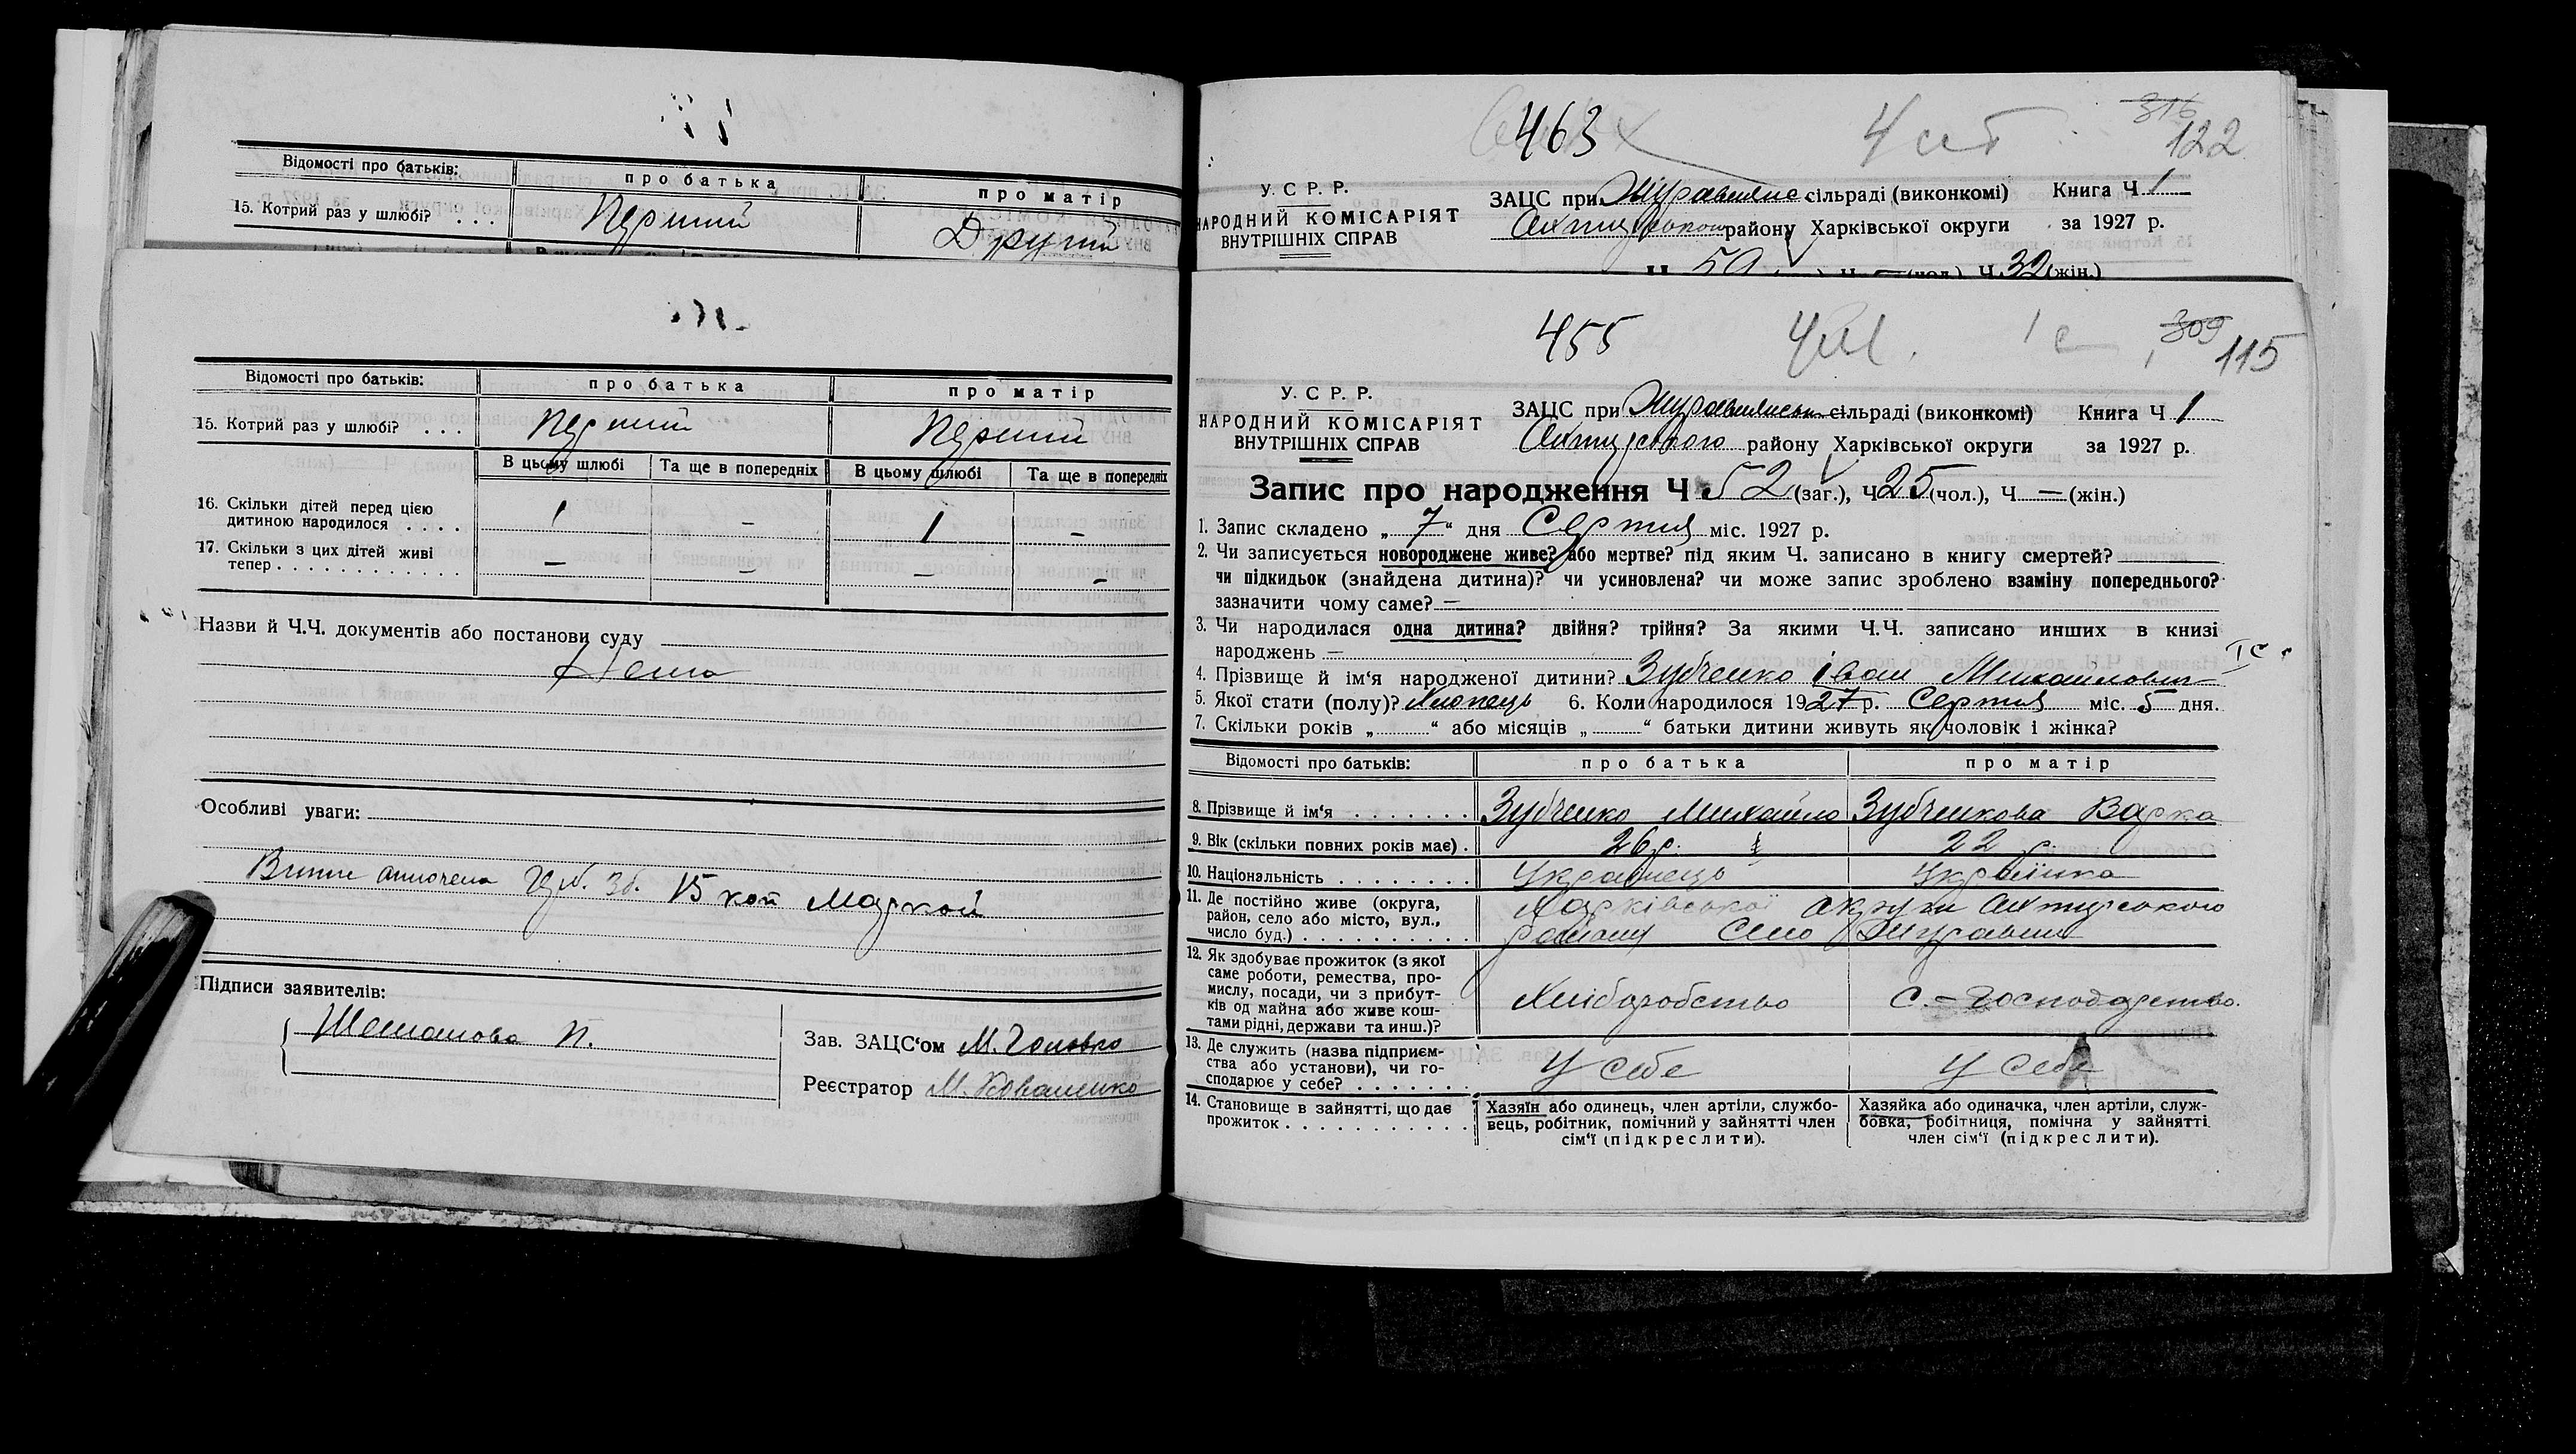 Відомості про батьків: про батька про матір
15. Котрий раз у шлюбі? . . . Перший Другий
Відомості про батьків: про батька про матір
15. Котрий раз у шлюбі? . . . Перший Перший
В цьому шлюбі Та ще в попередніх В цьому шлюбі Та ще в попередніх
16. Скільки дітей перед цією
дитиною народилося . . . . 1 – 1 –
17. Скільки з цих дітей живі
тепер . . . . . . . . . . . . . – – – –
Назви й Ч.Ч. документів або постанови суду
Нема
Особливі уваги:
15 коп маркой
Підписи заявителів:
П.
Зав. ЗАЦС‘ом М. Головко
Реєстратор М. Коваленко
463 122
316
У. С Р. Р.
НАРОДНИЙ КОМІСАРІЯТ
ВНУТРІШНІХ СПРАВ
ЗАЦС при Журавлянс. сільраді (виконкомі) Книга Ч 1
Охтирського району Харківської округи за 1927 р.
32 (жін.)
455 309
115
У. С Р. Р.
НАРОДНИЙ КОМІСАРІЯТ
ВНУТРІШНІХ СПРАВ
ЗАЦС при сільраді (виконкомі) Книга Ч 1
району Харківської округи за 1927 р.
Запис про народження Ч 52 (заг.), Ч 25 (чол.), Ч — (жін.)
1. Запис складено „ 7 “ дня Серпня міс. 1927 р.
2. Чи записується новороджене живе? або мертве? під яким Ч. записано в книгу смертей?
чи підкидьок (знайдена дитина)? чи усиновлена? чи може запис зроблено взаміну попереднього?
зазначити чому саме? —
3. Чи народилася одна дитина? двійня? трійня? За якими Ч.Ч. записано инших в книзі
народжень —
4. Прізвище й ім‘я народженої дитини? Зубченко Іван Михайлович
5. Якої стати (полу)? Хлопець 6. Коли народилося 1927 р. Серпня міс. 5 дня.
7. Скільки років „ “ або місяців „ “ батьки дитини живуть як чоловік і жінка?
Відомості про батьків: про батька про матір
8. Прізвище й ім‘я . . . . . . . Зубченко Михайло Зубченкова Варка
9. Вік (скільки повних років має) . 26 р. 22 р.
10. Національність . . . . . . . . Українець Українка
11. Де постійно живе (округа,
район, село або місто, вул.,
число буд.) . . . . . . . . . . Харківської округи Охтирського
району Село Журавне
12. Як здобуває прожиток (з якої
саме роботи, ремества, про-
мислу, посади, чи з прибут-
ків од майна або живе кош-
тами рідні, держави та инш.)?
Хліборобство С.-господарство.
13. Де служить (назва підприєм-
ства або установи), чи го-
сподарює у себе? . . . . . . . У себе У себе
14. Становище в зайнятті, що дає
прожиток . . . . . . . . . . . .
Хазяїн або одинець, член артіли, службо-
вець, робітник, помічний у зайнятті член
сім‘ї (підкреслити).
Хазяйка або одиначка, член артіли, служ-
бовка, робітниця, помічна у зайнятті
член сім‘ї (підкреслити).